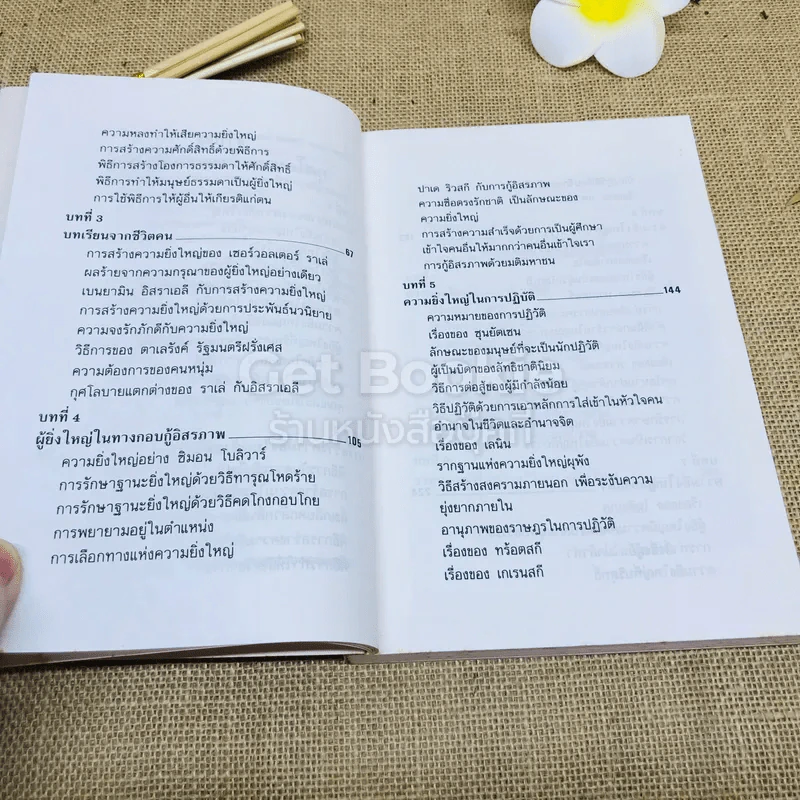 ความหลงทำให้เสียความยิ่งใหญ่
การสร้างความศักดิ์สิทธิ์ด้วยพิธีการ
พิธีการสร้างโองการธรรมดาให้ศักดิ์สิทธิ์
พิธีการทำให้มนุษย์ธรรมดาเป็นผู้ยิ่งใหญ่
การใช้พิธีการให้ผู้อื่นให้เกียรติแก่ตน
บทที่ 3
บทเรียนจากชีวิตคน 67
การสร้างความยิ่งใหญ่ของ เซอร์วอลเตอร์ ราเล่
ผลร้ายจากความกรุณาของผู้ยิ่งใหญ่อย่างเดียว
เบนยามิน อิสราเอลี กับการสร้างความยิ่งใหญ่
การสร้างความยิ่งใหญ่ด้วยการประพันธ์นวนิยาย
ความจงรักภักดีกับความยิ่งใหญ่
วิธีการของ ตาเลรังค์ รัฐมนตรีฝรั่งเศส
ความต้องการของคนหนุ่ม
กุศโลบายแตกต่างของ ราเล่ กับอิสราเอลี
บทที่ 4
ผู้ยิ่งใหญ่ในทางกอบกู้อิสรภาพ 105
ความยิ่งใหญ่อย่าง ซิมอน โบลิวาร์
การรักษาฐานะยิ่งใหญ่ด้วยวิธีทารุณโหดร้าย
การรักษาฐานะยิ่งใหญ่ด้วยวิธีคดโกงกอบโกย
การพยายามอยู่ในตำแหน่ง
การเลือกทางแห่งความยิ่งใหญ่
ปาเด ริวสกี กับการกู้อิสรภาพ
ความซื่อตรงรักชาติ เป็นลักษณะของ
ความยิ่งใหญ่
การสร้างความสำเร็จด้วยการเป็นผู้ศึกษา
เข้าใจคนอื่นให้มากกว่าคนอื่นเข้าใจเรา
การกู้อิสรภาพด้วยมติมหาชน
บทที่ 5
ความยิ่งใหญ่ในการปฏิบัติ 144
ความหมายของการปฏิวัติ
เรื่องของ ซุนยัดเซน
ลักษณะของมนุษย์ที่จะเป็นนักปฏิวัติ
ผู้เป็นบิดาของลัทธิชาตินิยม
วิธีการต่อสู้ของผู้มีกำลังน้อย
วิธีปฏิวัติด้วยการเอาหลักการใส่เข้าในหัวใจคน
อำนาจในชีวิตและอำนาจจิต
เรื่องของ เลนิน
รากฐานแห่งความยิ่งใหญ่ผุพัง
วิธีสร้างสงครามภายนอก เพื่อระงับความ
ยุ่งยากภายใน
อานุภาพของราษฎรในการปฏิวัติ
เรื่องของ ทร้อตสกี
เรื่องของ เกเรนสกี